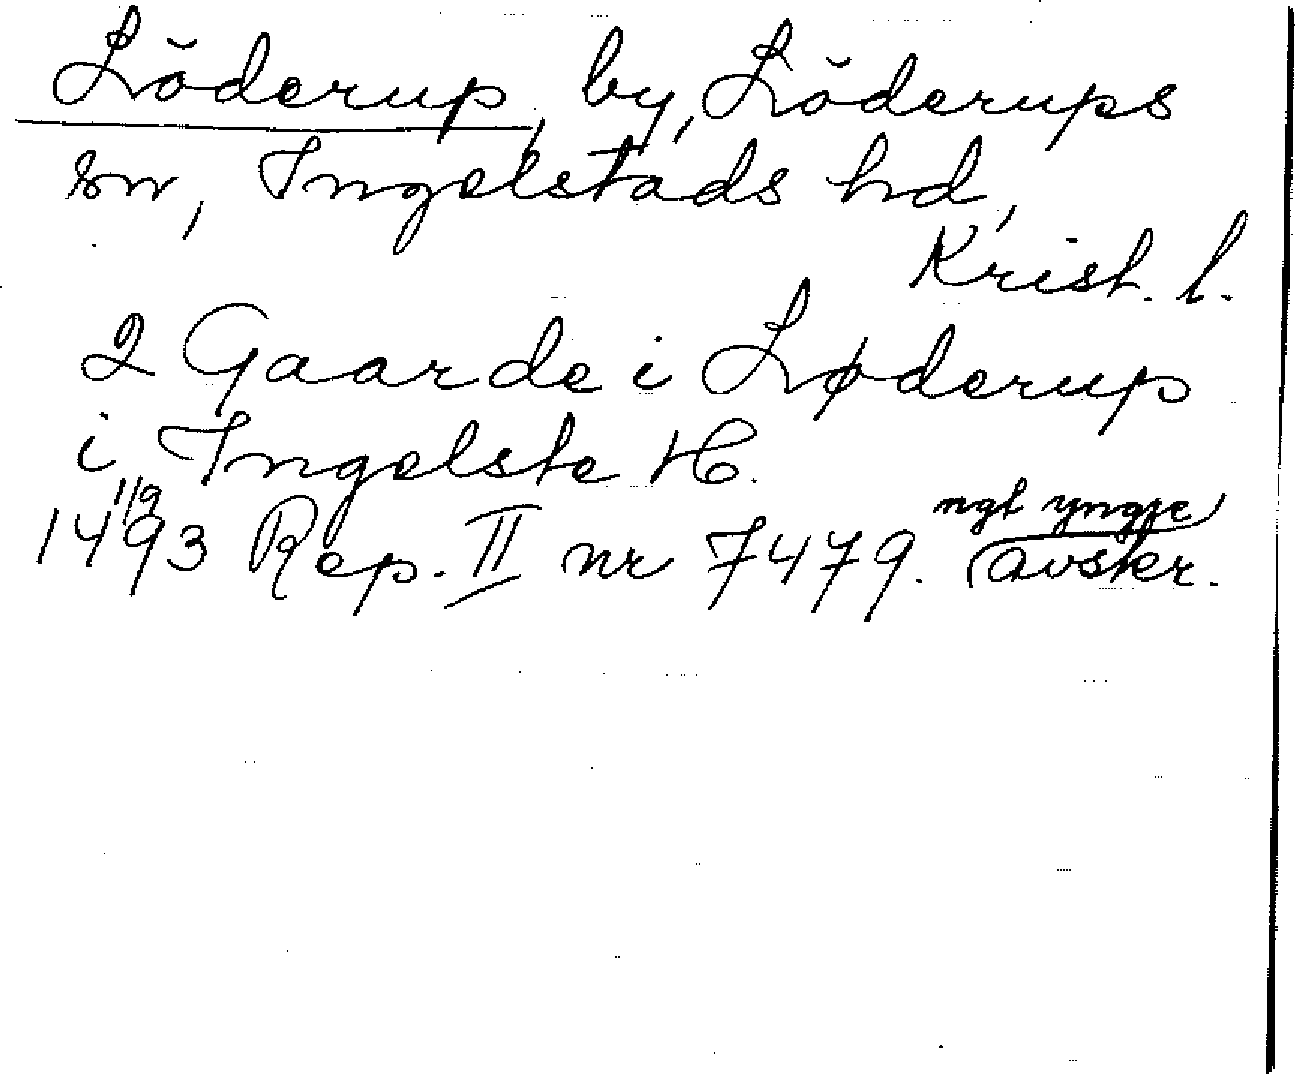 Löderup, by, Löderups
sn, Ingelstads hd,
Krist. l.
2 Gaarde i Løderup
i Ingelste H.
1493 1/9 Rep. II nr 7479. (ngt yngre) avskr.